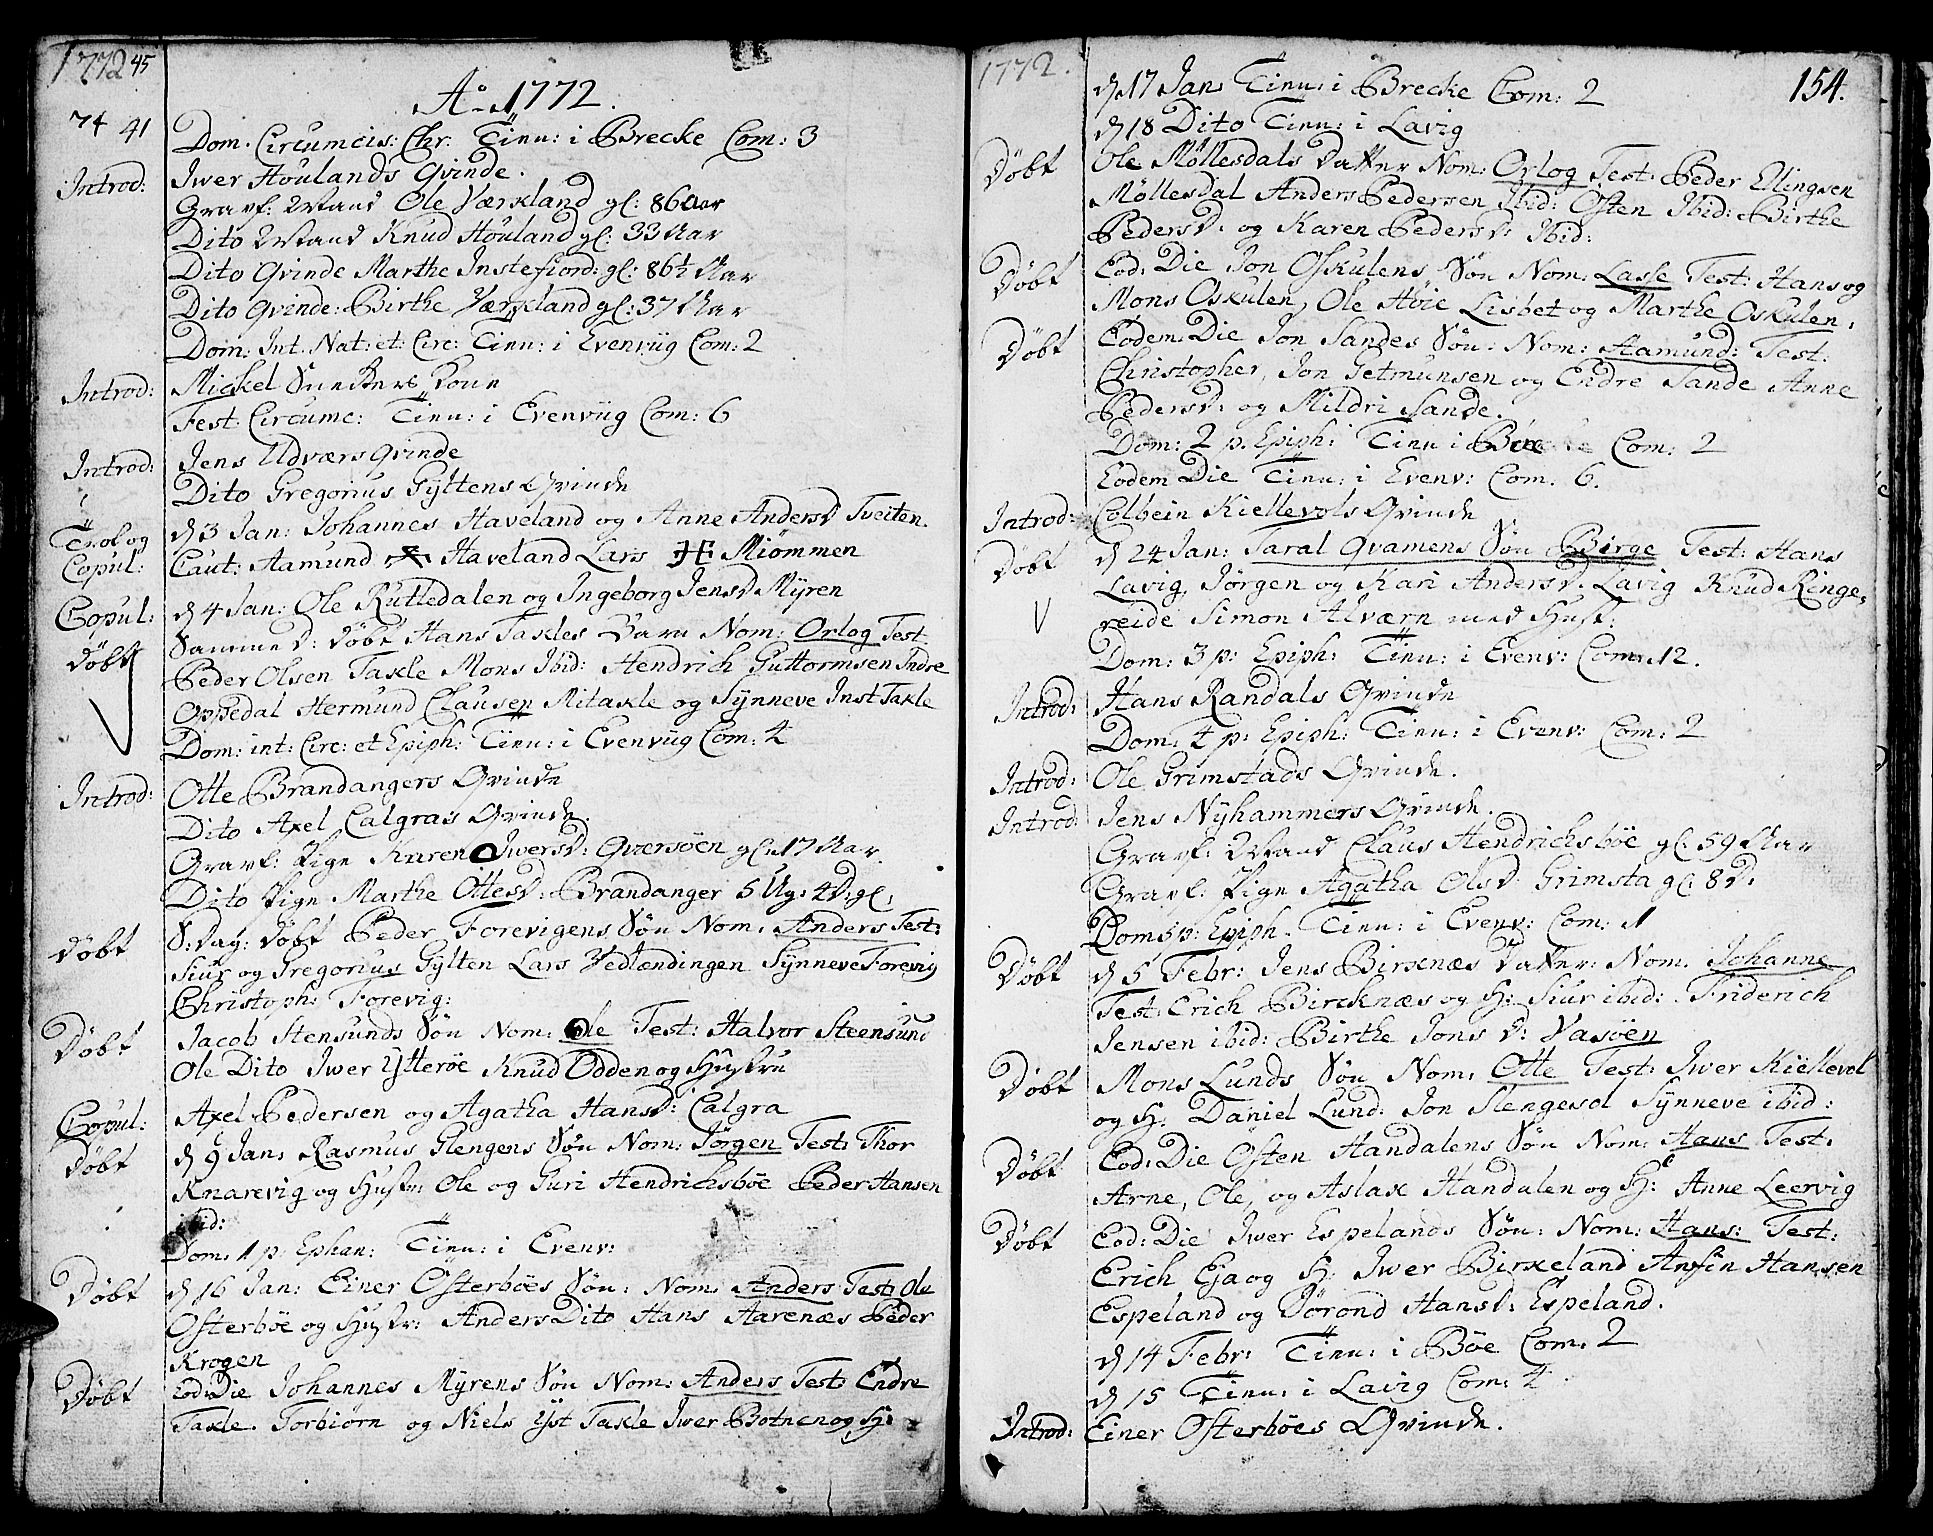 1772 45
Ao 1772.
74 41
Dom. Circumcis: Chr. Tinu: i Brecke Com: 3
Introd: Iwer Höulands Qvinde.
Gravf: Mand Ole Værkland gl: 86 Aar
Dito Mand Knud Höuland gl: 33 Aar
Dito Qvinde Marthe Instefiord: gl: 86½ Aar
Dito Qvinde: Birthe Værkland gl: 37 Aar
Dom: Int. Nat: et: Circ: Tinu: i Evenvüg Com: 2
Introd: Mickel Kone
Fest: Circumc: Tinu: i Evenvüg Com: 6
Introd: Jens Udværs Qvinde
Dito Gregorius Gÿltens Qvinde
Trol og d 3 Jan: Johannes Haveland og Anne Andersd Tveiten.
Copul: Caut: Aamund Haveland Lars Miömmen
Copul: d 4 Jan: Ole Rutledalen og Ingeborg Jensd Mÿren
Döbt Samme d: döbt Hans Takles Barn Nom: Orlog Test
Peder Olsen Takle Mons Ibid: Hendrich Guttormsen Indre
Oppedal Hermund Clausen Mitakle og Sÿnneve Inst Takle
Dom: int: Circ: et Epiph: Tinu: i Evenvüg Com: 4
Introd: Otte Brandangers Qvinde
Dito Axel Calgras Qvinde.
Gravf: Pige Karen Iwersd: Qversöen gl: 17 Aar.
Dito Pige Marthe Ottesd: Brandanger 5 Ug: 4 D: gl:
Döbt S: Dag: döbt Peder Forevigens Sön Nom: Anders Test:
Siur og Gregorius Gÿlten Lars Vedlændingen Sÿnneve Forevig
Christoph: Forevig:
Döbt Jacob Stensunds Sön Nom: Ole Test: Halvor Steensund
Ole Dito Iwer Ytteröe Knud Odden og Hustru
Copul: Axel Pedersen og Agatha Hansd: Calgra
Döbt d 9 Jan: Rasmus Glengens Sön Nom: Jörgen Test: Thor
Knarevig og Hustr: Ole og Guri Hendrichsböe Peder Hansen
ibid:
Dom: 1 p: Ephan: Tinu: i Evenv:
Döbt d 16 Jan: Einer Osterböes Sön: Nom: Anders Test: Ole
Osterböe og Hustr: Anders Dito Hans Aarenæs Peder
Krogen
Döbt Eod: Die Johannes Mÿrens Sön Nom: Anders Test: Endre
Takle. Torbiörn og Niels Yst Takle Iwer Botnen og H:
1772. 154.
d 17 Jan: Tinu: i Brecke Com: 2
d 18 Dito Tinu: i Lavig
Döbt Ole Möllesdals Datter Nom: Orlog Test: Peder Ellingsen
Möllesdal Anders Pedersen Ibid: Osten Ibid: Birthe
Pedersd: og Karen Pedersd: Ibid:
Döbt Eod: Die Jon Oskulens Sön Nom: Lasse Test: Hans og
Mons Oskulen, Ole Höie Lisbet og Marthe Oskulen.
Döbt Eodem: Die Jon Sandes Sön: Nom: Aamund: Test:
Christopher, Jon Jetmunsen og Endre Sande Anne
Pedersd: og Mildri Sande.
Dom: 2 p: Epiph: Tinu i Com: 2
Eodem Die Tinu: i Evenv: Com: 6.
Introd: Colbein Kiellevols Qvinde
Döbt d 24 Jan: Taral Qvamens Sön Birge Test: Hans
Lavig, Jörgen og Kari Andersd: Lavig Knud Ringe,
reide Simon Alværn med Hust:
Dom: 3 p: Epiph: Tinu: i Evenv: Com: 12.
Introd: Hans Randals Qvinde
Dom: 4 p: Epiph: Tinu: i Evenv: Com: 2
Introd: Ole Grimstads Qvinde.
Introd Jens Nÿhammers Qvinde.
Gravf: Mand Claus Hendrichsböe gl: 59 Aar
Gravf: Pige Agatha Olsd Grimsta gl: 8 D:
Dom 5 p: Epiph: Tinu: i Evenv: Com: 1
Döbt d 5 Febr: Jens Birknæs Datter: Nom. Johanne
Test: Erich Bircknæs og H: Siur ibid: Friderich
Jensen ibid: Birthe Jons d: Vasöen
Döbt Mons Lunds Sön Nom: Otte Test: Iwer Kiellevol
og H: Daniel Lund: Jon Slengesol Sÿnneve ibid:
Döbt Eod: Die Osten Handalens Sön Nom: Hans Test:
Arne, Ole, og Aslak Handalen og H: Anne Leervig
Döbt Eod: Die Iwer Espelands Sön: Nom: Hans: Test:
Erich Eja og H: Iwer Birkeland Anfin Hansen
Espeland og Dörond Hansd: Espeland.
d 14 Febr: Tinu: i Böe Com: 2
d 15 Tinu: i Lavig Com: 4
Introd: Einer Osterböes Qvinde.